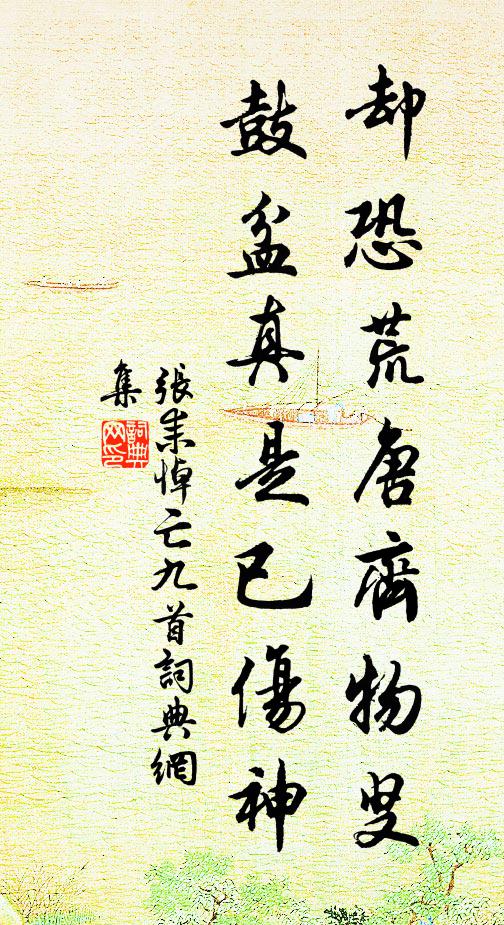 却恐荒唐齊物叟
鼓盆真是已傷神
張耒悼亡九首詞典網
集
詞典
网印